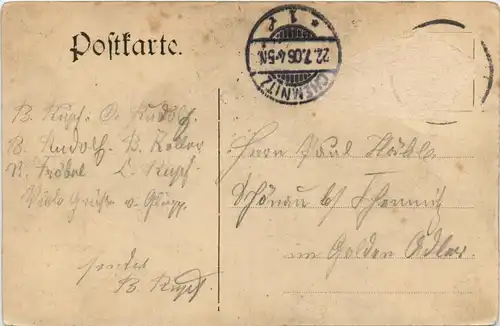 Postkarte.
* 1 f
22.7.06. 4-5N.
CHEMNITZ
B. Kupf. O. Rudolf.
B. Rudolf. B. Zeller
R. Fröbel L. Kupf.
Viele Grüße v.
sendet
B. Kupf.
Herrn Paul
Schönau b/ Chemnitz
im Golden Adler.